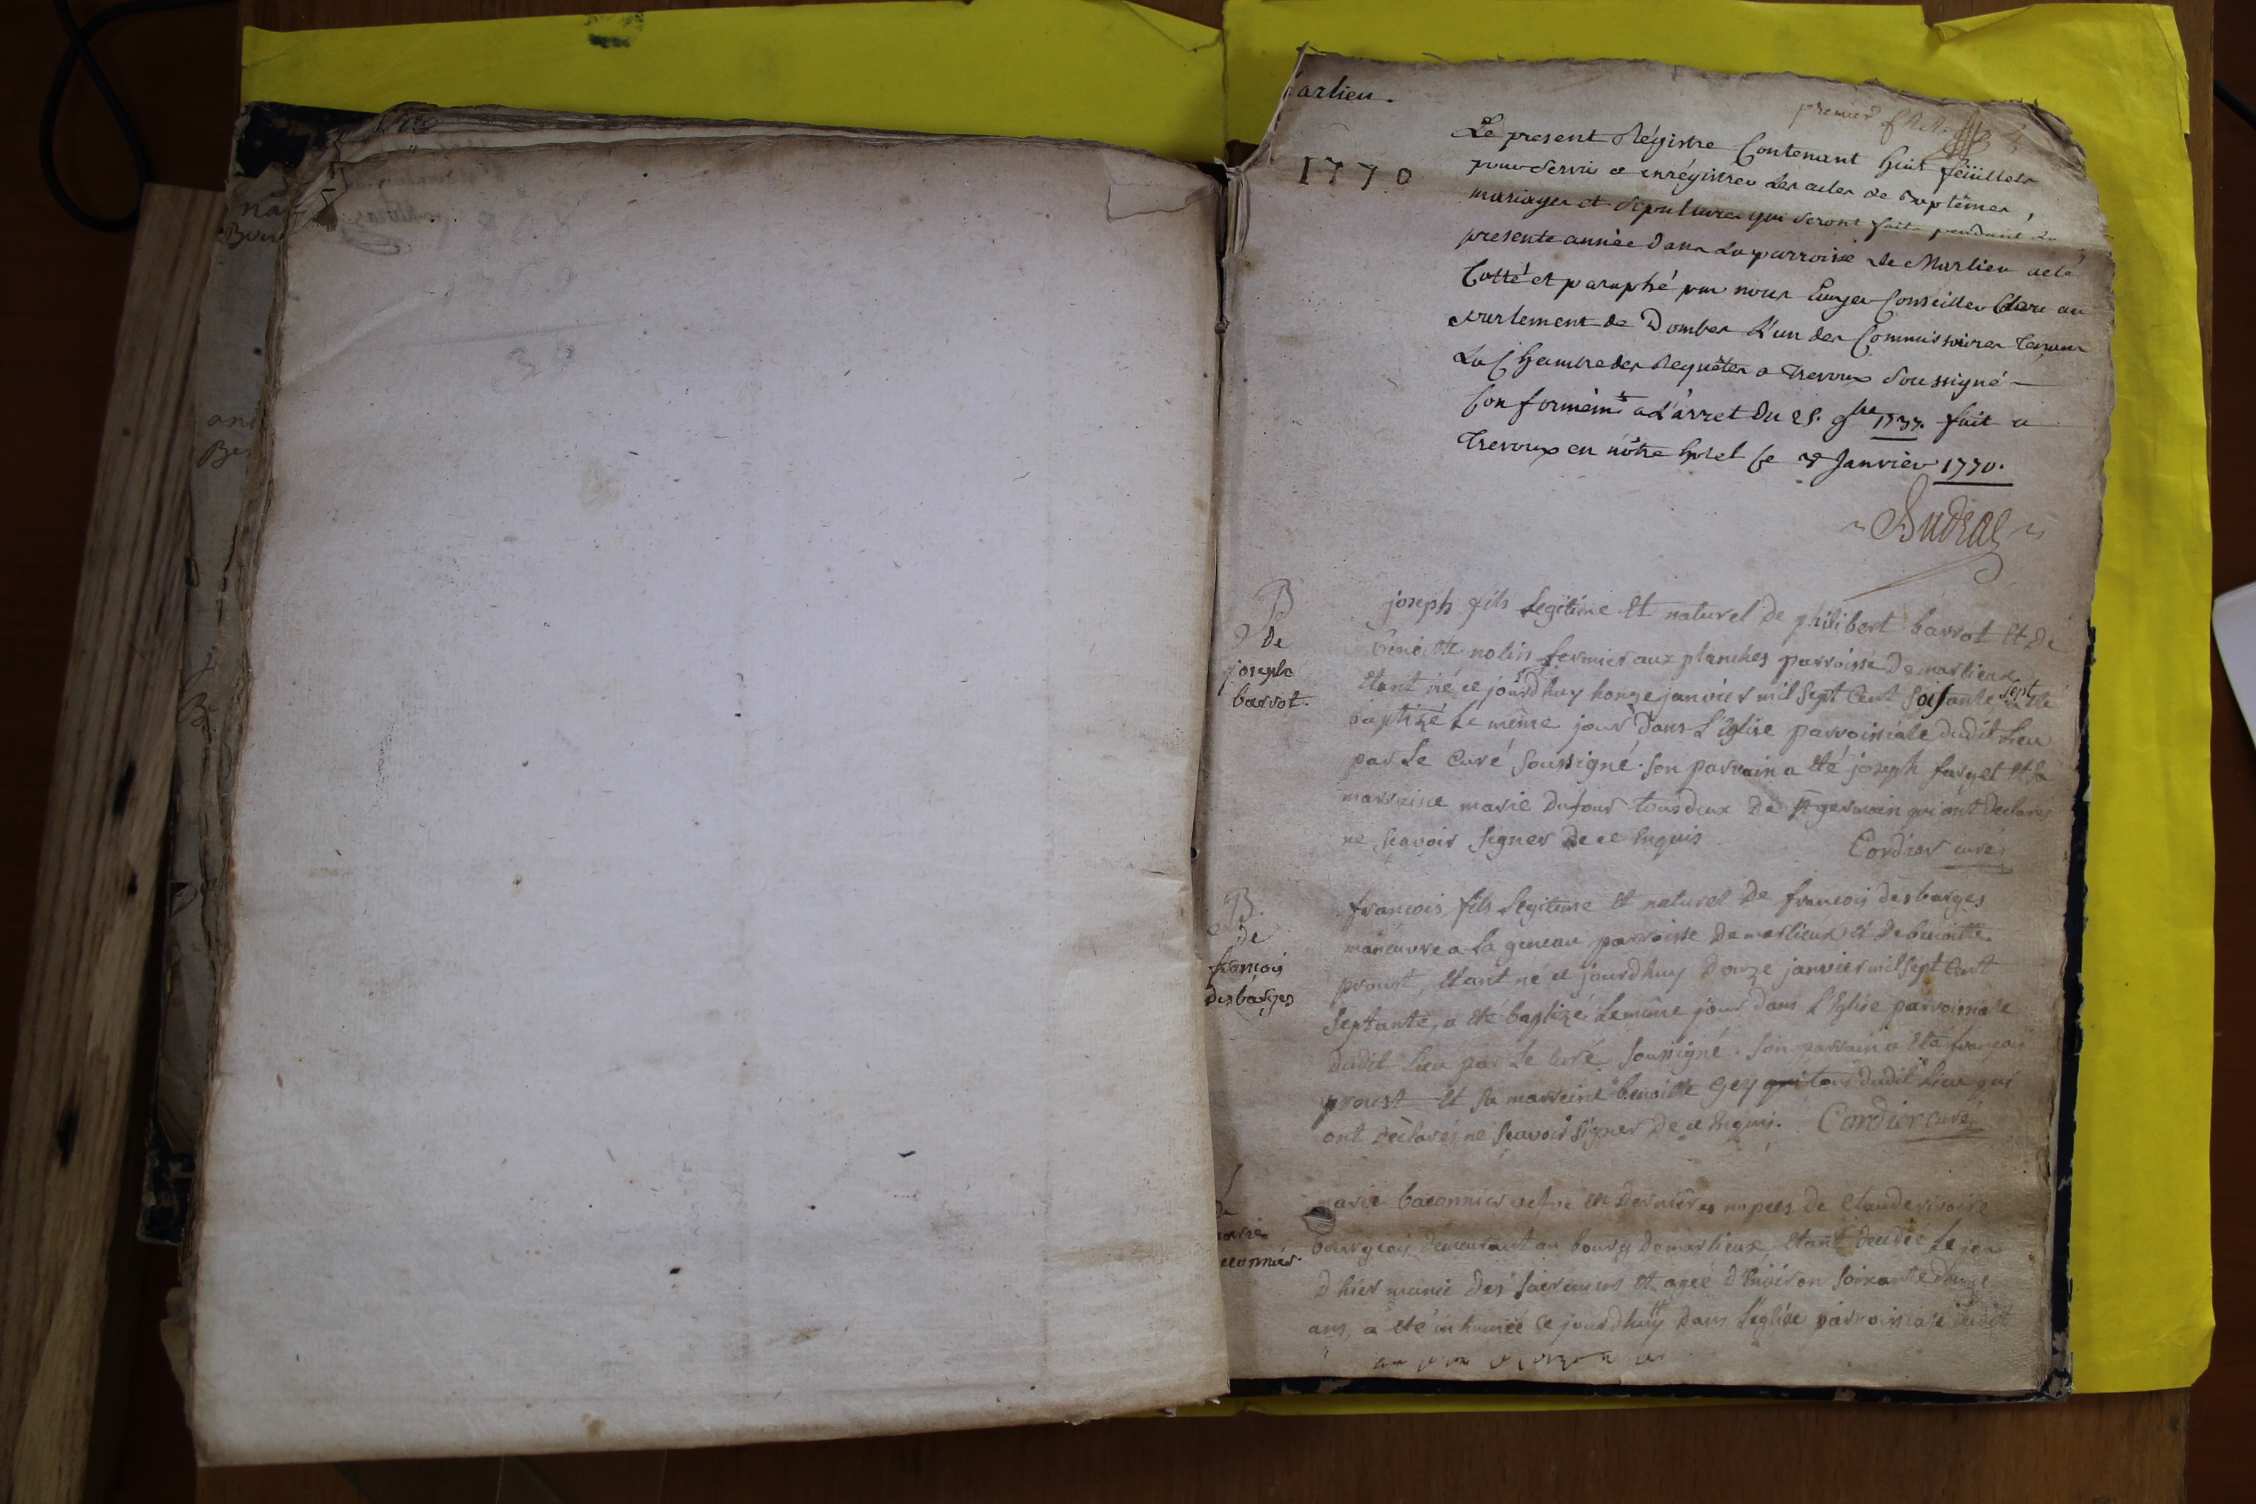 arlieu.
1770
premier
Le present Régistre Contenant huit feüillets
pour servir a enrégistrer Les actes de Baptêmes,
mariages et sepultures qui seront faits pendant La
presente année dans La parroisse de Marlieu a eté
Cotté et paraphé par nous Conseiller Clerc au
parlement de Dombes L'un des Commissaires tenant
La Chambre des Requêtes a Trevoux soussigné
Conformémt a L'arret du 25. 9bre 1737. fait a
Trevoux en nôtre hotel ce Janvier 1770.
B
De
joseph
barrot.
joseph fils Legitime Et naturel de philibert barrot Et De
benoitte nolin fermier aux planches parroisse De marlieux
Etant né ce jourdhuy honze janvier mil sept Cent septante a Eté
baptizé Le même jour Dans L'Eglise parroissiale dudit Lieu
par Le Curé soussigné. son parrain a Eté joseph farget Et sa
marraine marie Dufour tous deux De st germain qui ont Declarés
ne sçavoir signer De ce Enquis
Cordier curé
B.
de
francois
desbarges
francois fils Legitime Et naturel De francois desbarges
manoeuvre a La geneau parroisse De marlieux Et De benoitte
proust, Etant né ce jourdhuy Douze janvier mil sept Cent
septante, a Eté baptizé Le même jour dans L'Eglise parroissiale
dudit Lieu par Le Curé soussigné. son parrain a Eté francois
proust Et sa marraine benoitte Gey tous dudit Lieu qui
ont Déclarés ne sçavoir signer De ce Enquis. Cordier curé
De
marie
marie baconnier veuve En Dernieres nopces De Claude rivoire
bourgeois Demeurant au bourg De marlieux, Etant Decedée Le jour
D'hier munie Des sacremens Et agée D'Environ soixante Douze
ans, a Eté inhumée Ce jourdhuy Dans L'eglise parroissiale dudit